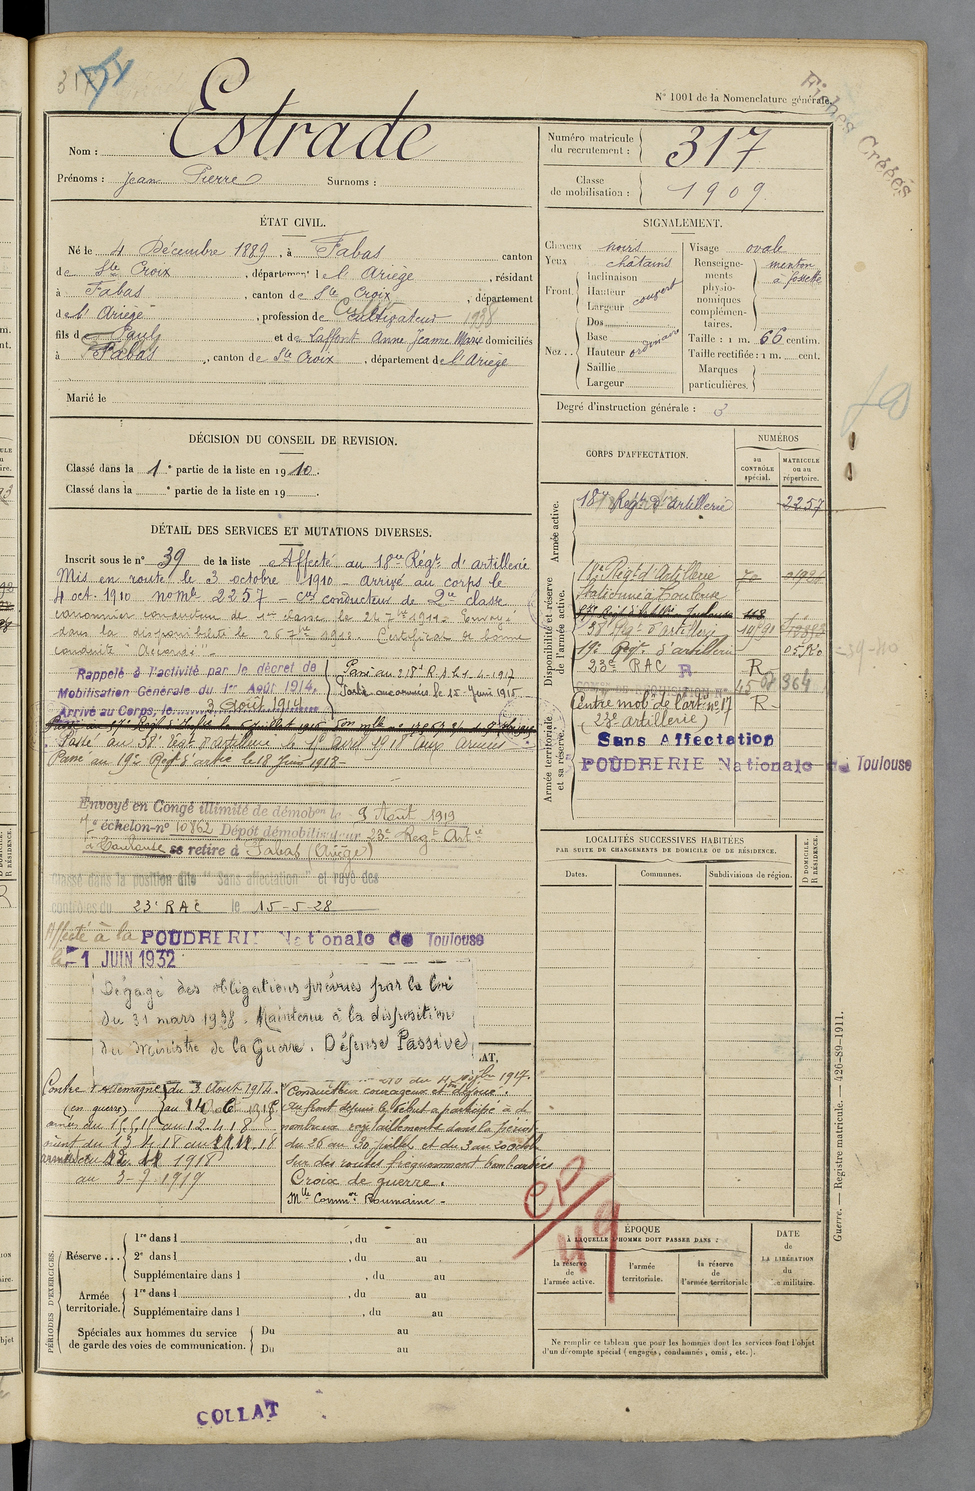 317
N° 1001 de la Nomenclature générale.
Fiches Créées
Nom : Estrade
Prénoms : Jean Pierre Surnoms :
Numéro matricule du recrutement : 317
Classe de mobilisation : 1909
ÉTAT CIVIL.
Né le 4 Décembre 1889, à Fabas canton
de Ste Croix, département de l'Ariège, résidant
à Fabas, canton de Ste Croix, département
de l'Ariège, profession de Cultivateur 1938
fils de Pauly et de Laffont Anne Jeanne Marie domiciliés
à Fabas, canton de Ste Croix, département de l'Ariège
Marié le
SIGNALEMENT.
Cheveux noirs
Yeux châtains
Front. Inclinaison
Hauteur
Largeur
couvert
Nez... Dos
Base
Hauteur ordinaire
Saillie
Largeur
Visage ovale
Renseignements physionomiques complémentaires. menton à fossette
Taille : 1 m. 66 centim.
Taille rectifiée : 1 m. cent.
Marques particulières.
Degré d'instruction générale : 3
DÉCISION DU CONSEIL DE REVISION.
Classé dans la 1e partie de la liste en 1910.
Classé dans la e partie de la liste en 19
CORPS D'AFFECTATION.
NUMÉROS
au CONTRÔLE spécial.
MATRICULE ou au répertoire.
Armée active.
18e Régt d'Artillerie 2257
Disponibilité et réserve de l'armée active.
Régt d'Artillerie
38e Régt d'artillerie
19e Régt d'artillerie
23e RAC R R
364
Armée territoriale et sa réserve.
Centre mob. de l'art. n° 17 R
(23e artillerie)
Sans Affectation
POUDRERIE Nationale de Toulouse
DÉTAIL DES SERVICES ET MUTATIONS DIVERSES.
Inscrit sous le n° 39 de la liste Affecté au 18me Régt d'artillerie
Mis en route le 3 octobre 1910 - arrivé au corps le
4 oct. 1910 no mle 2257 - Cer conducteur de 2me classe
canonnier conducteur de 1re classe le 24 7bre 1911. Envoyé
dans la disponibilité le 26 7bre 1912. Certificat de bonne
conduite "Accordé"
Rappelé à l'activité par le décret de
Mobilisation Générale du 1er Août 1914.
Arrivé au Corps, le 3 Août 1914
Parti aux armées le 15 Juin 1915
Passé au 38e Régt d'artillerie le 1er avril 1918 aux armées
Passé au 19e Régt d'artie le 18 Juin 1918
Envoyé en Congé illimité de démobon le 9 Août 1919
7e échelon-n° 10862 Dépôt démobilisateur 23e Régt Artie
à Toulouse se retire à Fabas (Ariège)
Classé dans la position dite "Sans affectation" et rayé des
contrôles du 23e RAC le 15-5-28
Affecté à la POUDRERIE Nationale de Toulouse
le -1 JUIN 1932
Dégagé des obligations prévues par la loi
du 31 mars 1928. Maintenu à la disposition
du Ministre de la Guerre. Défense Passive
Contre l'Allemagne du 3 Août 1914
(en guerre) au
armées du 15 6 15 au 12.4.18
orient du 13 4 18 au
armées du 1918
au 3-7-1919
du 4 1917
Conducteur courageux et
Au front depuis le début a participé à de
nombreux ravitaillements dans la période
du 26 au 30 juillet et du 3 au 20 octob
sur des routes fréquemment bombardées
Croix de guerre.
Mlle Commve Roumaine -
CP 49
LOCALITÉS SUCCESSIVES HABITÉES
PAR SUITE DE CHANGEMENTS DE DOMICILE OU DE RÉSIDENCE.
Dates.
Communes.
Subdivisions de région.
D DOMICILE.
R RÉSIDENCE.
PÉRIODES D'EXERCICES.
Réserve... 1re dans l , du au
2e dans l , du au
Supplémentaire dans l , du au
Armée territoriale. 1re dans l , du au
Supplémentaire dans l , du au
Spéciales aux hommes du service de garde des voies de communication. Du au
Du au
ÉPOQUE
À LAQUELLE L'HOMME DOIT PASSER DANS :
la réserve de l'armée active.
l'armée territoriale.
la réserve de l'armée territoriale
DATE de LA LIBÉRATION du militaire.
Ne remplir ce tableau que pour les hommes dont les services font l'objet
d'un décompte spécial (engagés, condamnés, omis, etc.).
Guerre. — Registre matricule. — 426-89-1911.
COLLAT